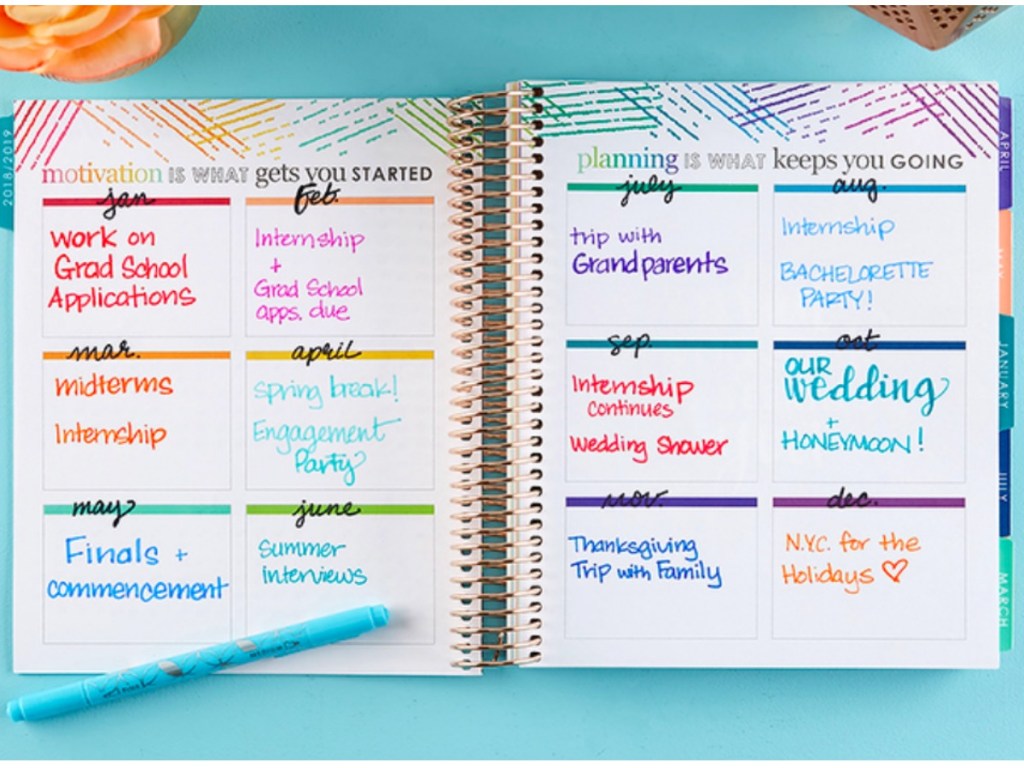 motivation IS WHAT gets you STARTED
jan
work on
Grad School
Applications
Feb.
Internship
+
Grad School
apps. due
mar.
midterms
Internship
april
spring break!
Engagement
Party
may
Finals +
commencement
june
summer
interviews
planning IS WHAT keeps you GOING
july
trip with
Grandparents
aug.
Internship
BACHELORETTE
PARTY!
sep.
Internship
continues
wedding Shower
oct
OUR
wedding
+
HONEYMOON!
nov.
Thanksgiving
Trip with Family
dec.
N.Y.C. for the
Holidays ♡
2018/2019
APRIL
MAY
JANUARY
JULY
MARCH